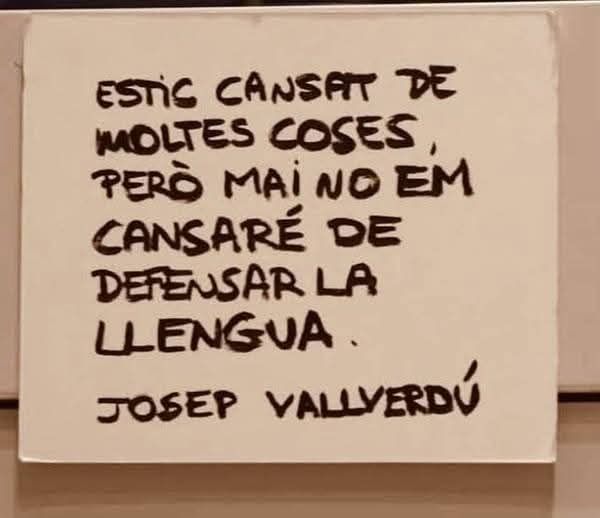 ESTIC CANSAT DE
MOLTES COSES,
PERÒ MAI NO EM
CANSARÉ DE
DEFENSAR LA
LLENGUA.
JOSEP VALLVERDÚ